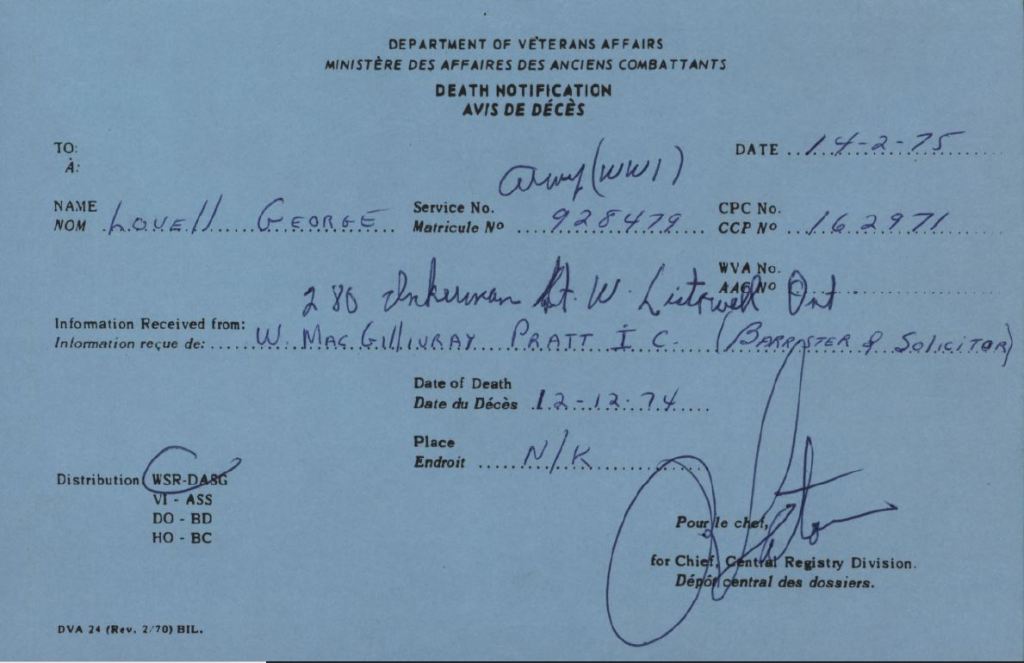 DEPARTMENT OF VETERANS AFFAIRS
MINISTÈRE DES AFFAIRES DES ANCIENS COMBATTANTS
DEATH NOTIFICATION
AVIS DE DÉCÈS
TO:
À:
DATE 14-2-75
Army (WWI)
NAME
NOM Lovell GEORGE
Service No.
Matricule Nº 928479
CPC No.
CCP Nº 162971
WVA No.
AAG Nº
280 Inkerman St. W. Listowell Ont
Information Received from:
Information reçue de: W. MacGillivray PRATT I C. (BARRISTER & SOLICITOR)
Date of Death
Date du Décès 12-12-74
Place
Endroit N/K
Distribution WSR-DASG
VI - ASS
DO - BD
HO - BC
Pour le chef,
for Chief, Central Registry Division.
Dépôt central des dossiers.
DVA 24 (Rev. 2/70) BIL.